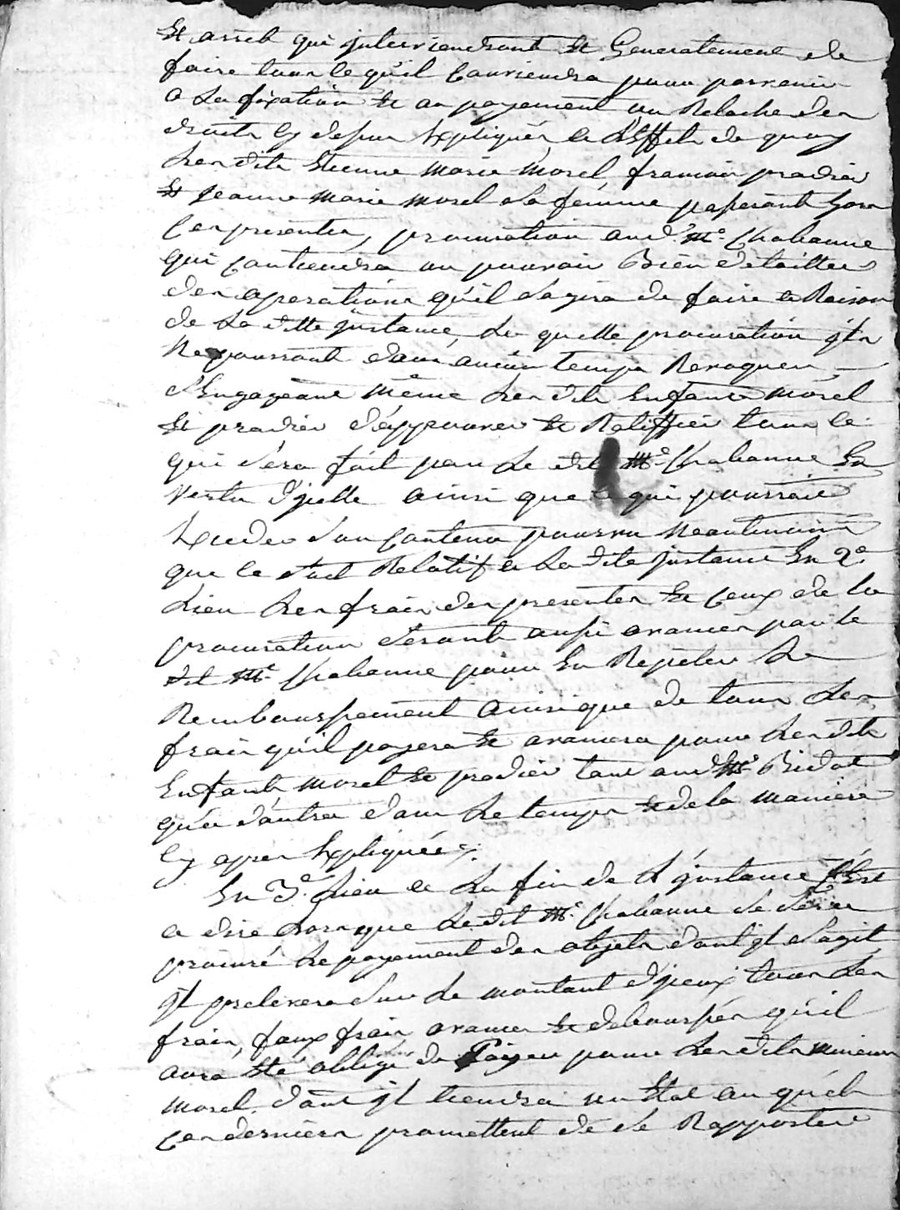 Et arrêt qui interviendront Et Generalement de
faire tous ce qu'il Conviendra pour parvenir
a La fixation Et au payement ou Relache des
droits Cy dessus Expliqués, a L'Effet de quoy
Les dits Etienne Marie Morel françois pradier
Et Jeanne Marie Morel sa femme passeront hors
Ces presentes, procuration audt Me. Chabanne
qui Contiendra un pouvoir Bien detaillée
des operations qu'il s'agira de faire a Raison
de La ditte Instance, La quelle procuration Ils
Ne pourront dans aucun temps Revoquer,
s'Engageant même Les dits Enfants Morel
Et pradier d'approuver Et Ratiffier tous ce
qui sera fait par Le dit Me Chabanne En
Vertu d'jcelle ainsi que ce qui pourroit
Exceder son Contenu pourvu Neantmoins
que ce soit Relatif a La dite Instance En 2e
Lieu Les frais des presentes Et Ceux de la
procuration seront aussi avancés par le
dit Me Chabanne pour En Repeter Le
Remboursement ainsi que de tous Les
frais qu'il payera Et avancera pour Les dits
Enfants Morel Et pradier tant audt Me Bidat
qu'a d'autres dans Le temps Et de la maniere
Cy apres Expliquée.
En 3e. Lieu a La fin de L'jnstance C'Est
a dire Lorsque Le dit Me. Chabanne se sera
procuré Le payement des objets dont Il s'agit
Il prelevera sur Le montant d'jceux tous Les
frais, faux frais, avances Et deboursés qu'il
aura Eté obligé de Payer pour Les dits
Morel, dont Il tiendra un Etat au quel
Ces derniers promettent de se Rapporter